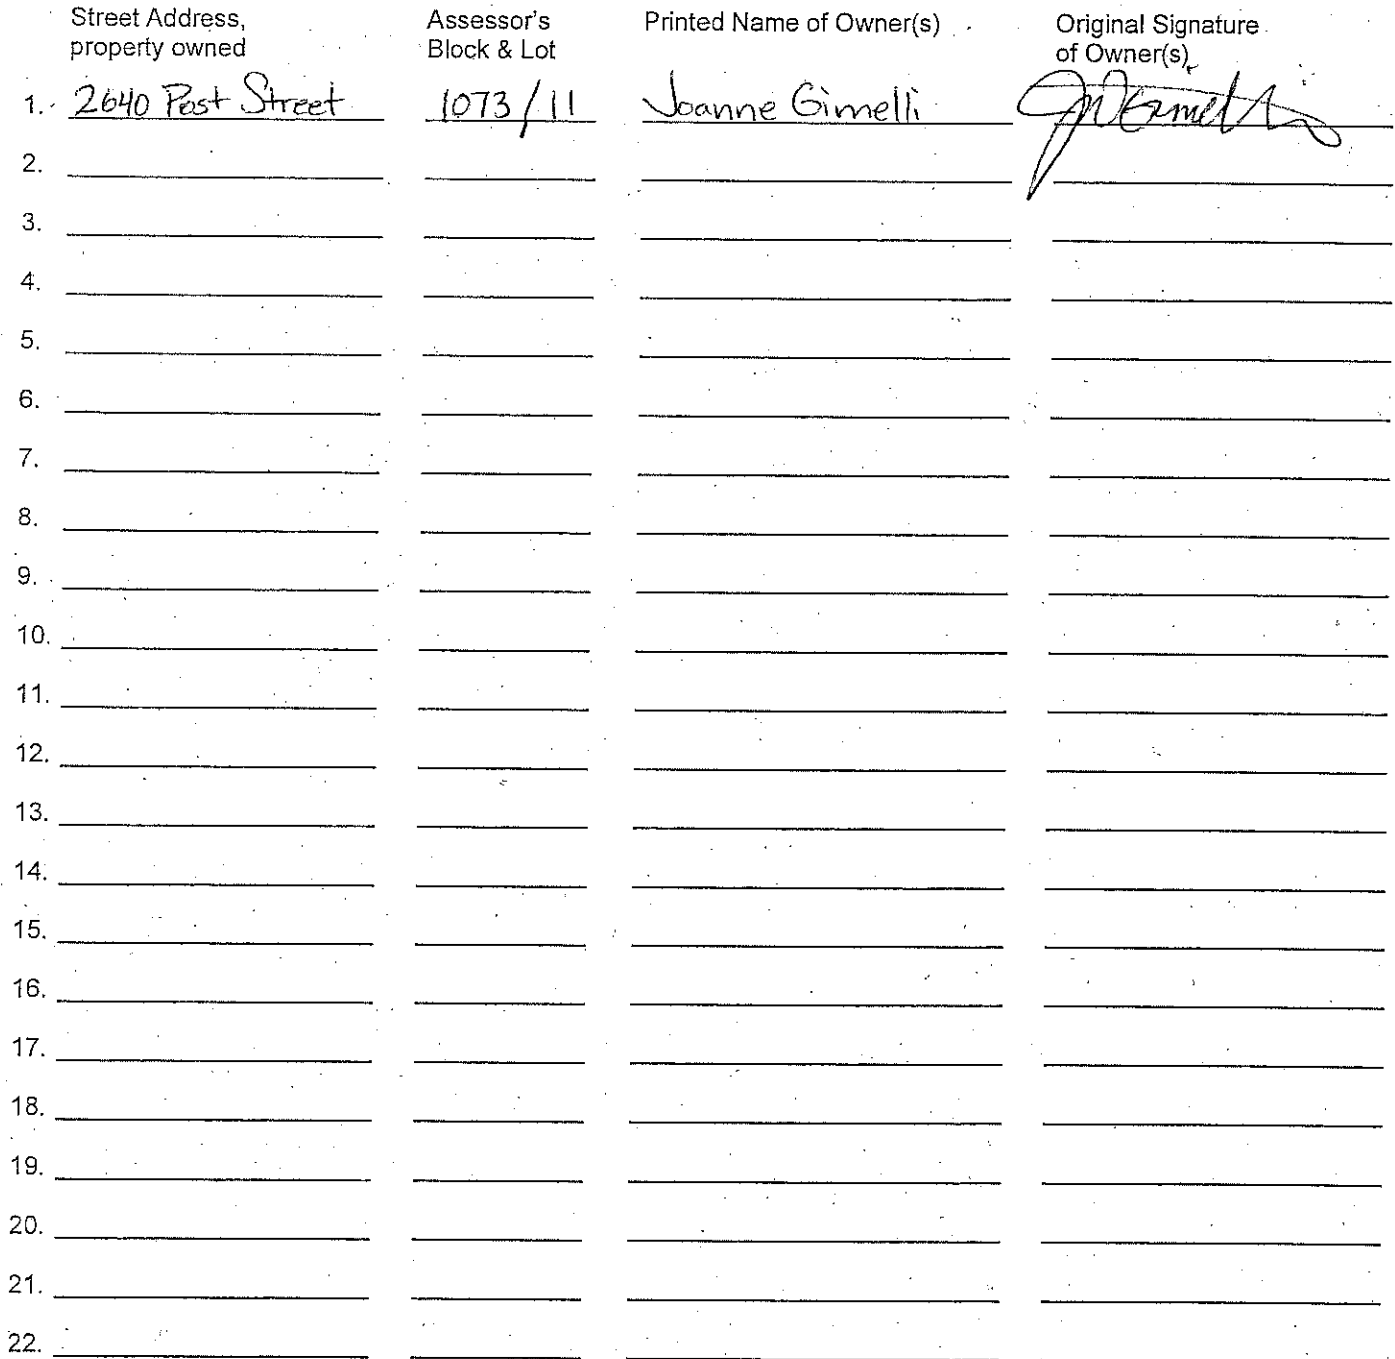 Street Address,
property owned
Assessor's
Block & Lot
Printed Name of Owner(s)
Original Signature
of Owner(s)
1. 2640 Post Street 1073/11 Joanne Gimelli
2.
3.
4.
5.
6.
7.
8.
9.
10.
11.
12.
13.
14.
15.
16.
17.
18.
19.
20.
21.
22.